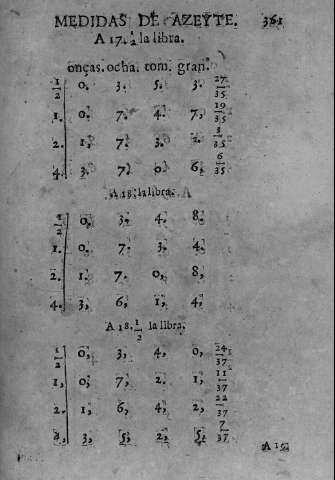 MEDIDAS DE AZEYTE. 361
A 17. 1/2 la libra.
onças. ocha. tom. gran.
1/2 0. 3. 5. 3. 27/35
1. 0. 7. 4. 7, 19/35
2. 1, 7. 3. 3/35
4. 3. 7. 0. 6, 6/35
A 18. la libra.
1/2 0, 3. 4. 8.
1. 0. 7. 3. 4.
2. 1. 7. 0, 8,
4. 3, 6, 1, 4,
A 18. 1/2 la libra.
1/2 0, 3, 4, 0, 24/37
1, 0, 7, 2. 1, 11/37
2. 1, 6, 4, 2, 22/37
4, 3, 5, 2, 5, 7/37